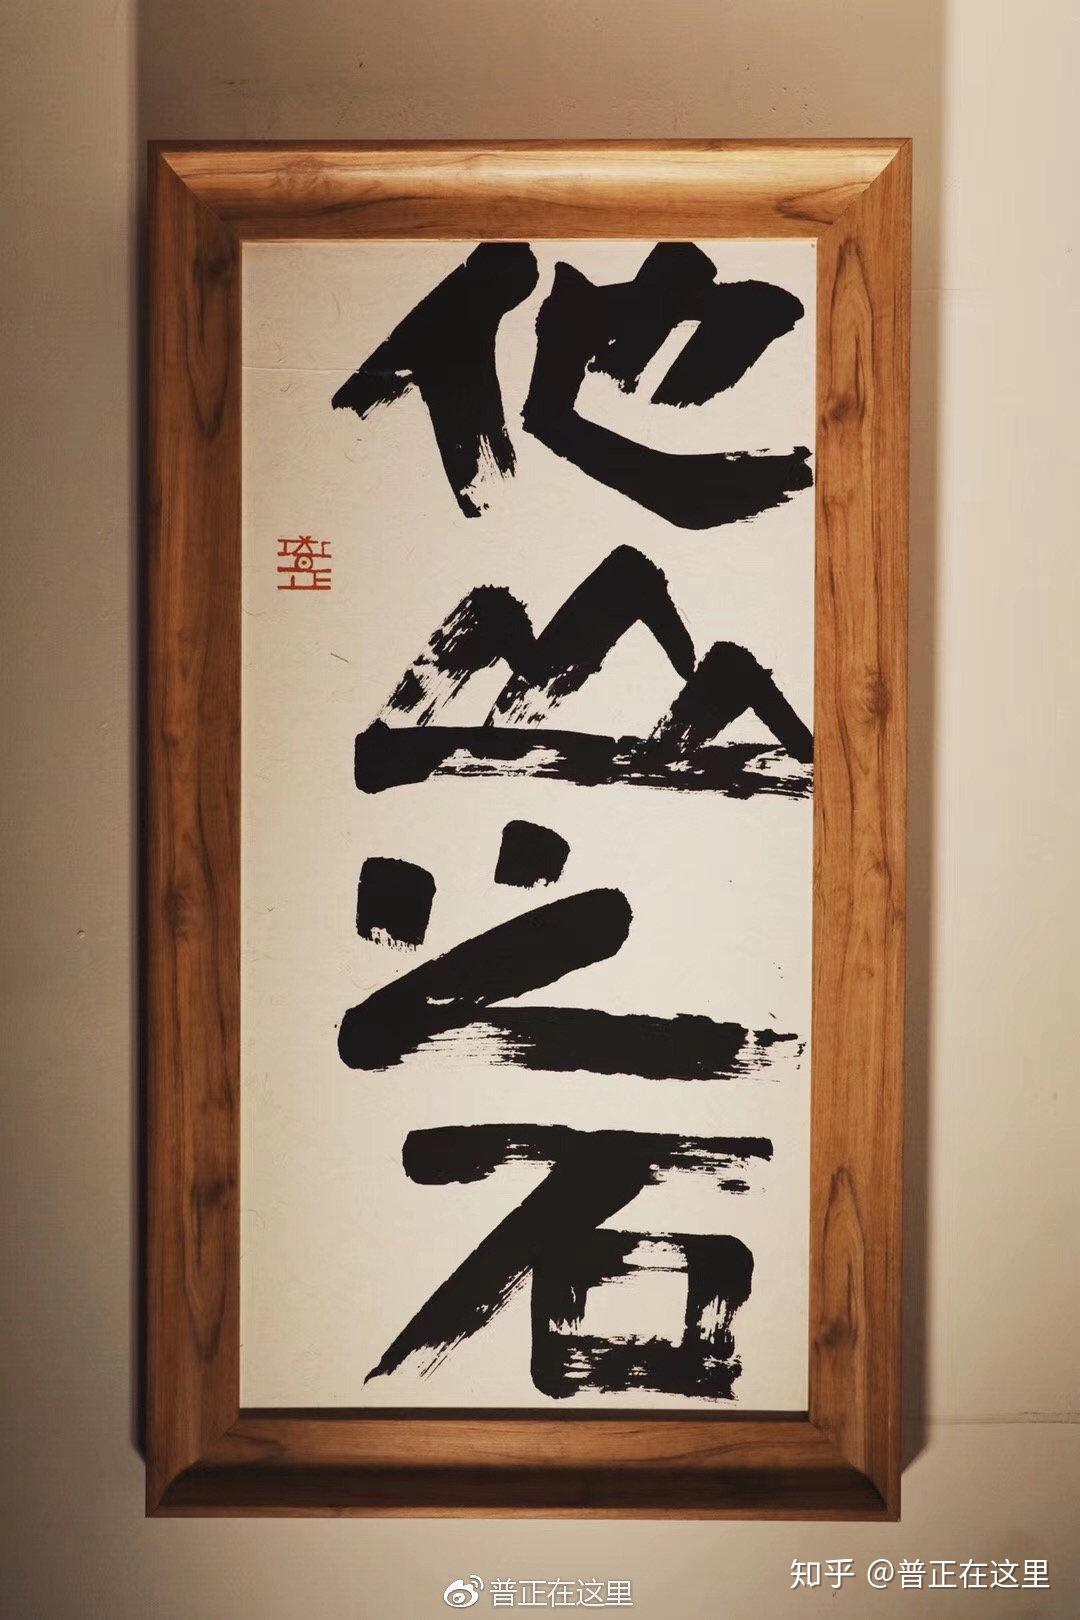 他山之石
知乎 @普正在这里
普正在这里